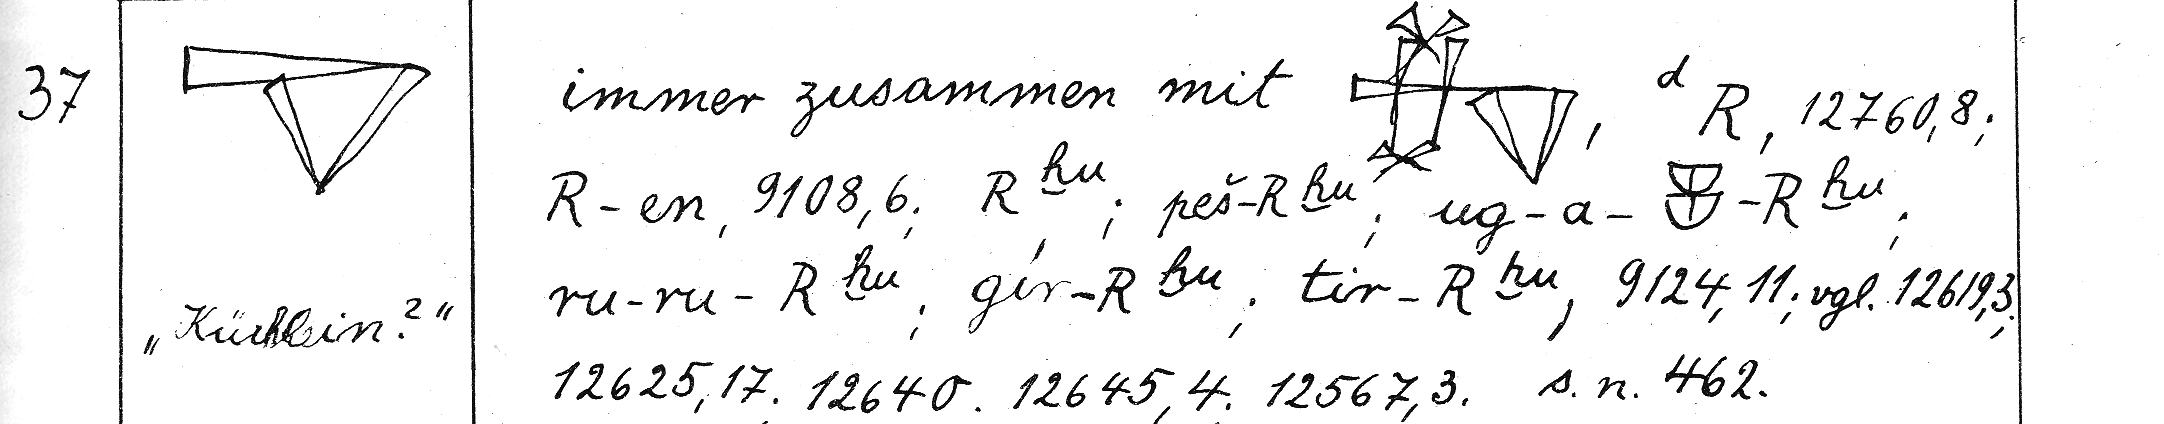 37
immer zusammen mit , ᵈ R, 12760,8;
R-en, 9108,6; R ḫu; peš-R ḫu; ug-a- -R ḫu;
ru-ru-R ḫu; gír-R ḫu; tir-R ḫu, 9124,11; vgl. 12619,3;
„Küchlein?“
12625,17. 12640. 12645,4. 12567,3. s. n. 462.